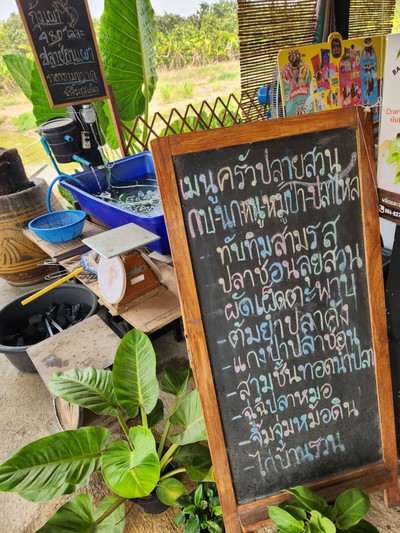 กุ้งแม่น้ำ
430 กิโลละ
เมนูครัวปลายสวน
กบ/นก/หนู/หมูป่า/ปลาไหล
- ทับทิมสามรส
- ปลาช่อนลุยสวน
- ผัดเผ็ดตะพาบ
- ต้มยำปลาคัง
- แกงป่าปลาช่อน
- สามชั้นทอดน้ำปลา
- ฉู่ฉี่ปลาหมอ
- จิ้มจุ่มหม้อดิน
- ไก่บ้านรวน